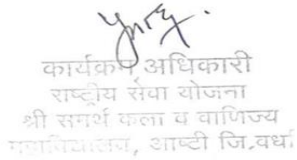 कार्यक्रम अधिकारी
राष्ट्रीय सेवा योजना
श्री समर्थ कला व वाणिज्य
महाविद्यालय, आष्टी जि.वर्धा